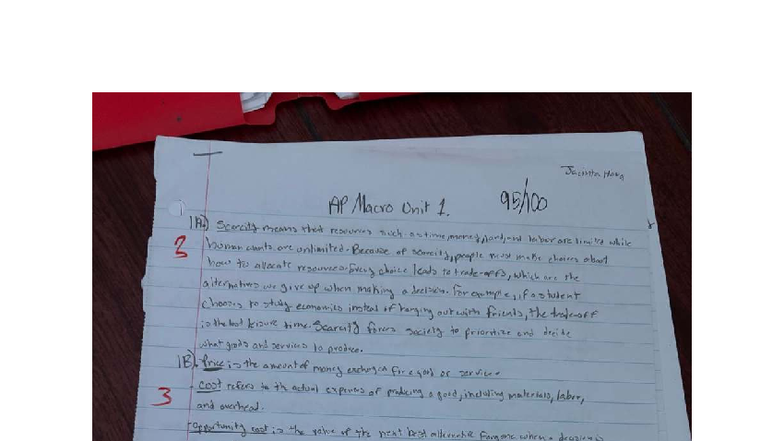 Jacintha
AP Macro Unit 1.
95/100
1A) Scarcity means that resources such as time, money, land, and labor are limited while
3
human wants are unlimited. Because of scarcity, people must make choices about
how to allocate resources. Every choice leads to trade-offs, which are the
alternatives we give up when making a decision. For example, if a student
chooses to study economics instead of hanging out with friends, the trade off
is the lost leisure time. Scarcity forces society to prioritize and decide
what goods and services to produce.
1B). Price is the amount of money exchanged for a good or service.
3
cost refers to the actual expenses of producing a good, including materials, labor,
and overhead.
-opportunity cost is the value of the next best alternative forgone when a decision is